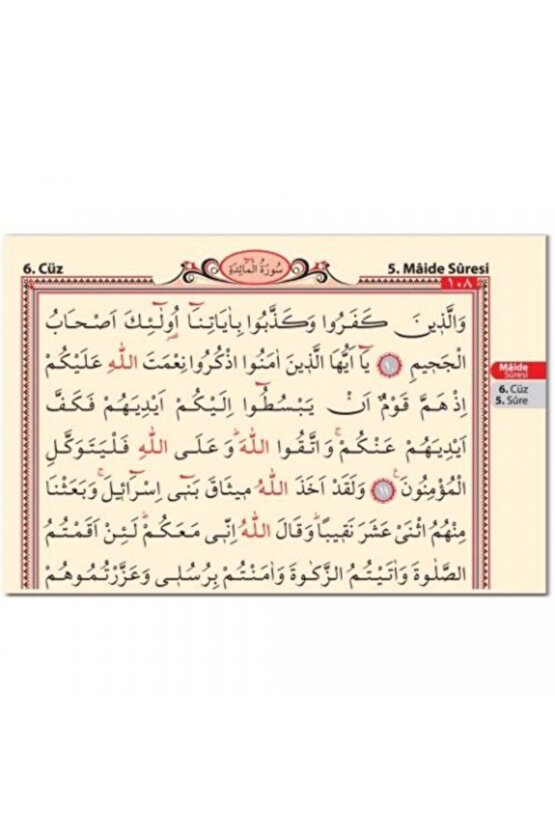 6. Cüz
سُورَةُ الْمَائِدَةِ
5. Mâide Sûresi
١٠٨
وَالَّذ۪ينَ كَفَرُوا وَكَذَّبُوا بِاٰيَاتِنَٓا اُو۬لٰٓئِكَ اَصْحَابُ
الْجَح۪يمِ ﴿١٠﴾ يَٓا اَيُّهَا الَّذ۪ينَ اٰمَنُوا اذْكُرُوا نِعْمَتَ اللّٰهِ عَلَيْكُمْ
اِذْ هَمَّ قَوْمٌ اَنْ يَبْسُطُٓوا اِلَيْكُمْ اَيْدِيَهُمْ فَكَفَّ
اَيْدِيَهُمْ عَنْكُمْۚ وَاتَّقُوا اللّٰهَۜ وَعَلَى اللّٰهِ فَلْيَتَوَكَّلِ
الْمُؤْمِنُونَ۟ ﴿١١﴾ وَلَقَدْ اَخَذَ اللّٰهُ م۪يثَاقَ بَن۪ٓي اِسْرَٓائ۪لَۚ وَبَعَثْنَا
مِنْهُمُ اثْنَيْ عَشَرَ نَق۪يبًاۜ وَقَالَ اللّٰهُ اِنّ۪ي مَعَكُمْۜ لَئِنْ اَقَمْتُمُ
الصَّلٰوةَ وَاٰتَيْتُمُ الزَّكٰوةَ وَاٰمَنْتُمْ بِرُسُل۪ي وَعَزَّرْتُمُوهُمْ
Mâide
Sûresi
6. Cüz
5. Sûre